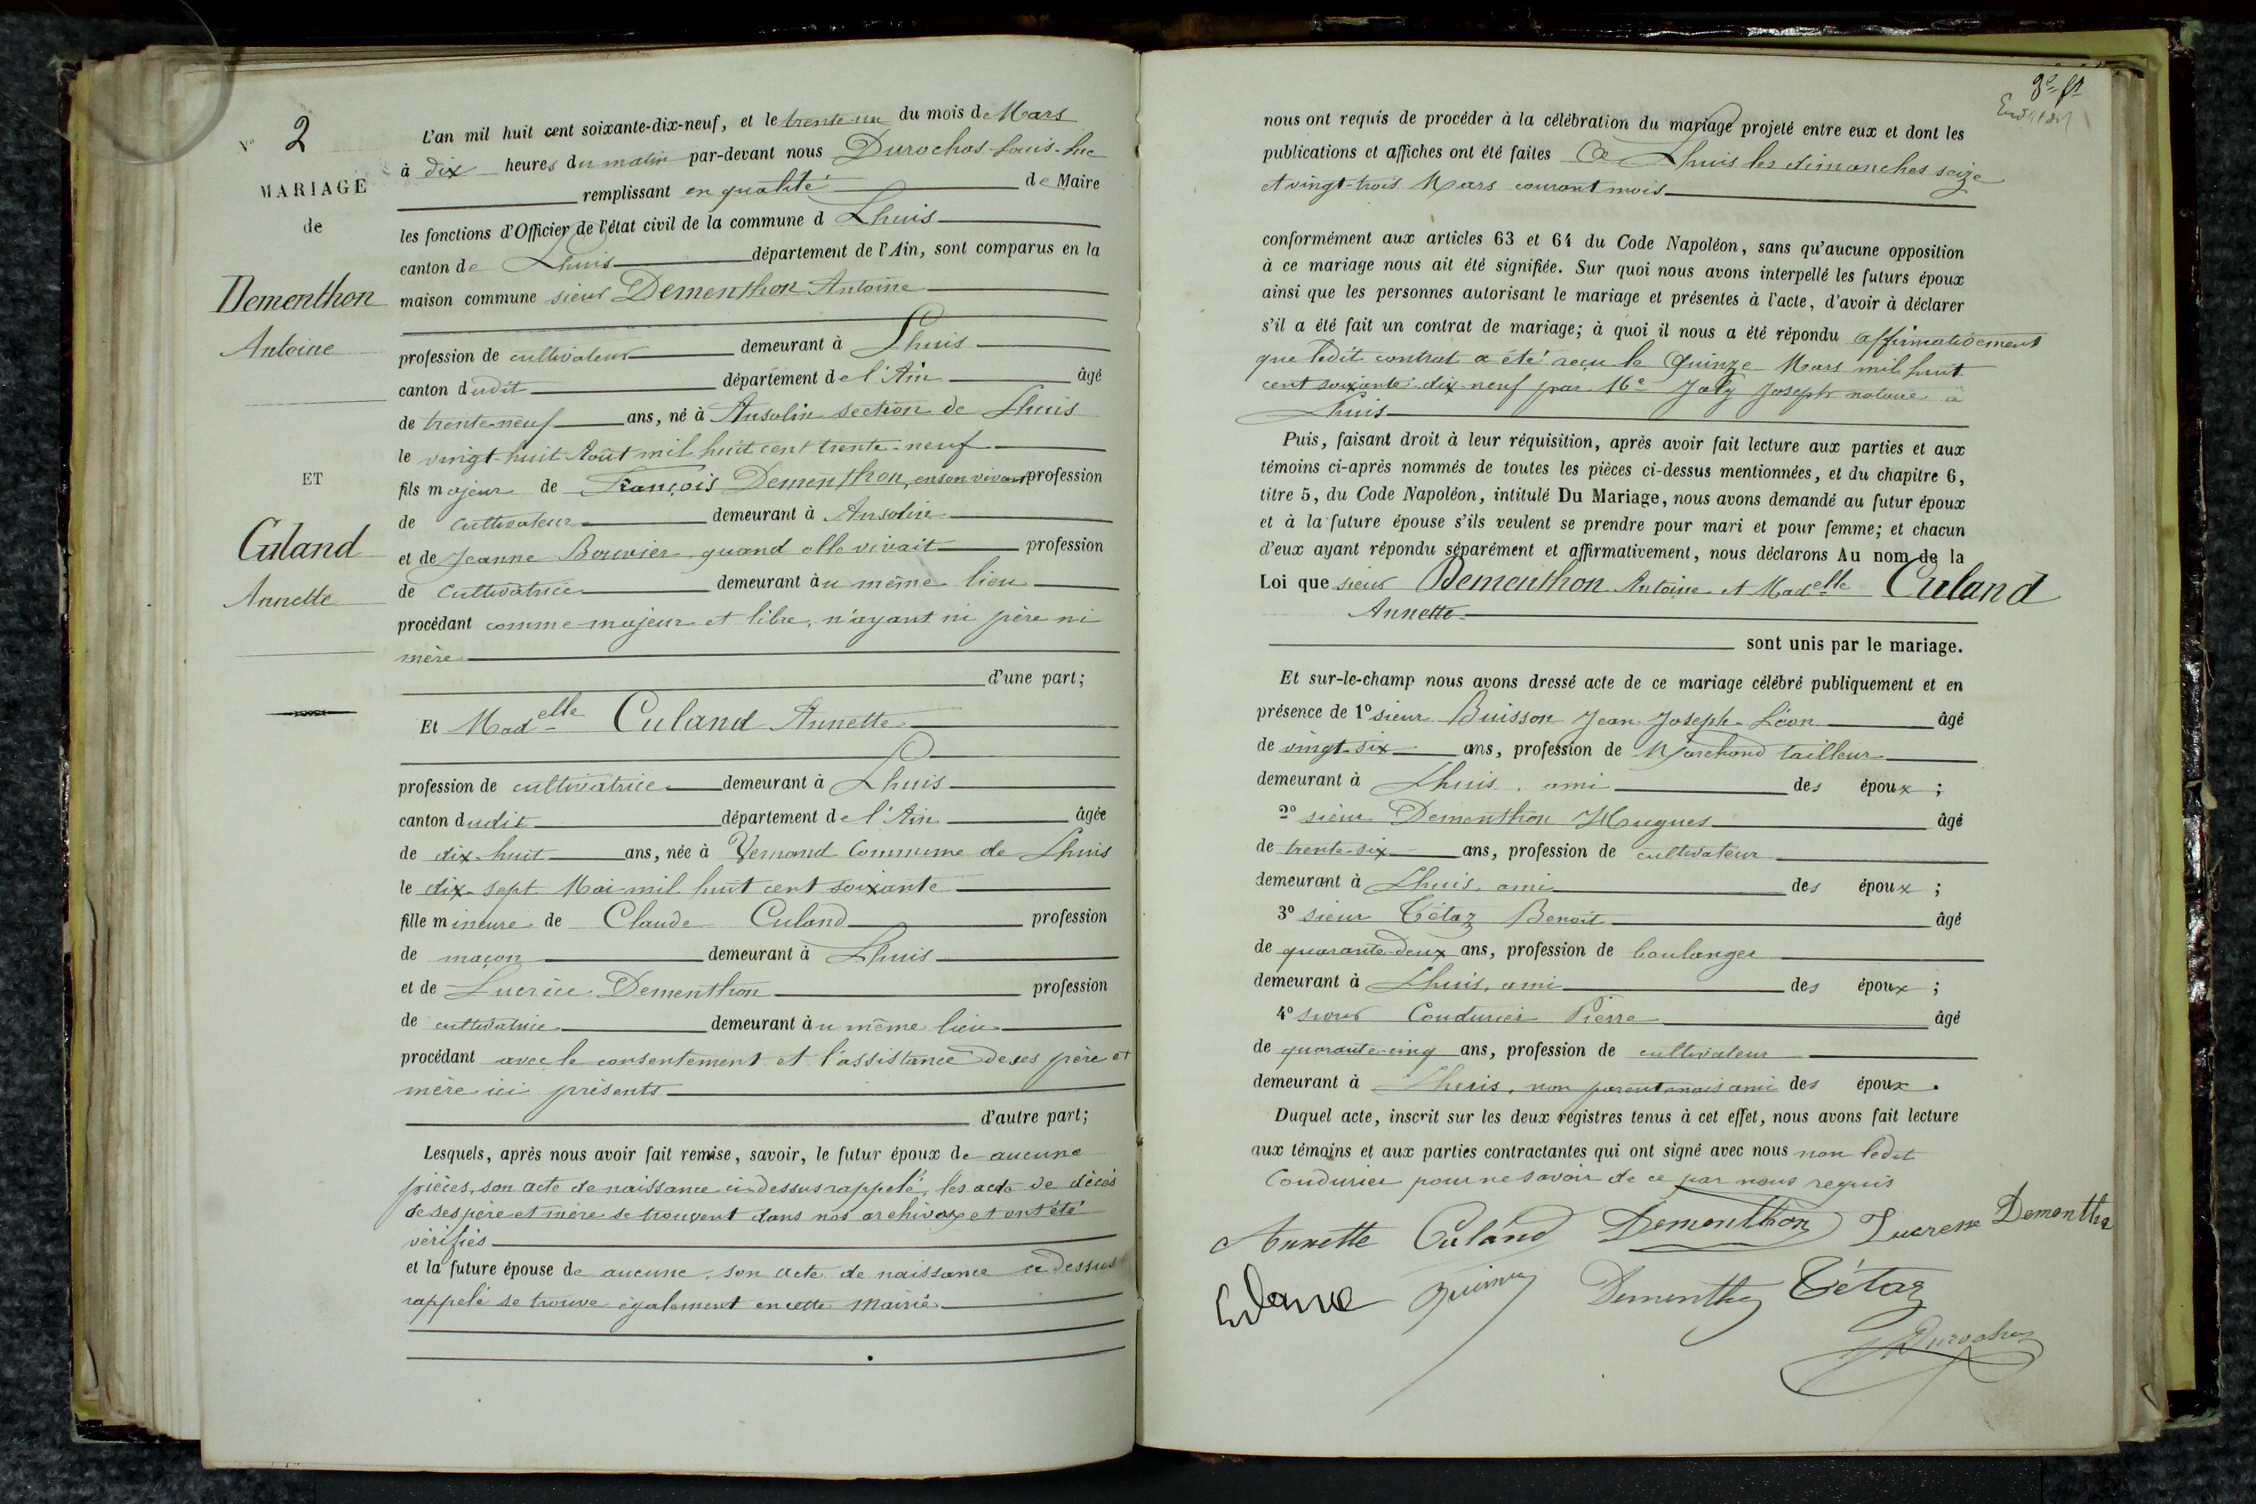 N° 2
MARIAGE
de
Dementhon
Antoine
ET
Culand
Annette
L'an mil huit cent soixante-dix-neuf, et le trente un du mois de Mars
à dix heures du matin par-devant nous Durochas Louis-Luc
remplissant en qualité de Maire
les fonctions d'Officier de l'état civil de la commune d Lhuis
canton de Lhuis département de l'Ain, sont comparus en la
maison commune sieur Dementhon Antoine
profession de cultivateur demeurant à Lhuis
canton dudit département de l'Ain âgé
de trente-neuf ans, né à Ansolin section de Lhuis
le vingt-huit Août mil huit cent trente-neuf
fils majeur de François Dementhon, en son vivant profession
de cultivateur demeurant à Ansolin
et de Jeanne Bouvier quand elle vivait profession
de cultivatrice demeurant au même lieu
procédant comme majeur et libre, n'ayant ni père ni
mère
d'une part;
Et Madelle Culand Annette
profession de cultivatrice demeurant à Lhuis
canton dudit département de l'Ain âgée
de dix-huit ans, née à Vernand Commune de Lhuis
le dix-sept Mai mil huit cent soixante
fille mineure de Claude Culand profession
de maçon demeurant à Lhuis
et de Lucrèce Dementhon profession
de cultivatrice demeurant au même lieu
procédant avec le consentement et l'assistance de ses père et
mère ici présents
d'autre part;
Lesquels, après nous avoir fait remise, savoir, le futur époux de aucune
pièces, son acte de naissance ci-dessus rappelé, les acte de décès
de ses père et mère se trouvent dans nos archives et ont été
vérifiés
et la future épouse de aucune, son acte de naissance ci dessus
rappelé se trouve également en cette Mairie
nous ont requis de procéder à la célébration du mariage projeté entre eux et dont les
publications et affiches ont été faites à Lhuis les dimanches seize
et vingt-trois Mars courant mois
conformément aux articles 63 et 64 du Code Napoléon, sans qu'aucune opposition
à ce mariage nous ait été signifiée. Sur quoi nous avons interpellé les futurs époux
ainsi que les personnes autorisant le mariage et présentes à l'acte, d'avoir à déclarer
s'il a été fait un contrat de mariage; à quoi il nous a été répondu affirmativement
que ledit contrat a été reçu le Quinze Mars mil huit
cent soixante-dix-neuf par Me Joly Joseph notaire à
Lhuis
Puis, faisant droit à leur réquisition, après avoir fait lecture aux parties et aux
témoins ci-après nommés de toutes les pièces ci-dessus mentionnées, et du chapitre 6,
titre 5, du Code Napoléon, intitulé Du Mariage, nous avons demandé au futur époux
et à la future épouse s'ils veulent se prendre pour mari et pour femme; et chacun
d'eux ayant répondu séparément et affirmativement, nous déclarons Au nom de la
Loi que sieur Dementhon Antoine et Madelle Culand
Annette
sont unis par le mariage.
Et sur-le-champ nous avons dressé acte de ce mariage célébré publiquement et en
présence de 1° sieur Buisson Jean Joseph Léon âgé
de vingt-six ans, profession de Marchand tailleur
demeurant à Lhuis, ami des époux;
2° sieur Dementhon Hugues âgé
de trente-six ans, profession de cultivateur
demeurant à Lhuis, ami des époux;
3° sieur Tétaz Benoit âgé
de quarante-deux ans, profession de boulanger
demeurant à Lhuis, ami des époux;
4° sieur Coudurier Pierre âgé
de quarante-cinq ans, profession de cultivateur
demeurant à Lhuis, non parent mais ami des époux.
Duquel acte, inscrit sur les deux registres tenus à cet effet, nous avons fait lecture
aux témoins et aux parties contractantes qui ont signé avec nous non ledit
Coudurier pour ne savoir de ce par nous requis
Annette Culand Dementhon Lucresse Dementho
Culand Dementho Tétaz
Durochas